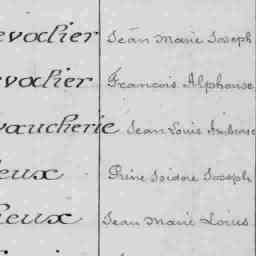 evalier Jean Marie Joseph
evalier François Alphonse
vaucherie Jean Louis Ambrose
ieux Isidore Joseph
ieux Jean Marie Louis